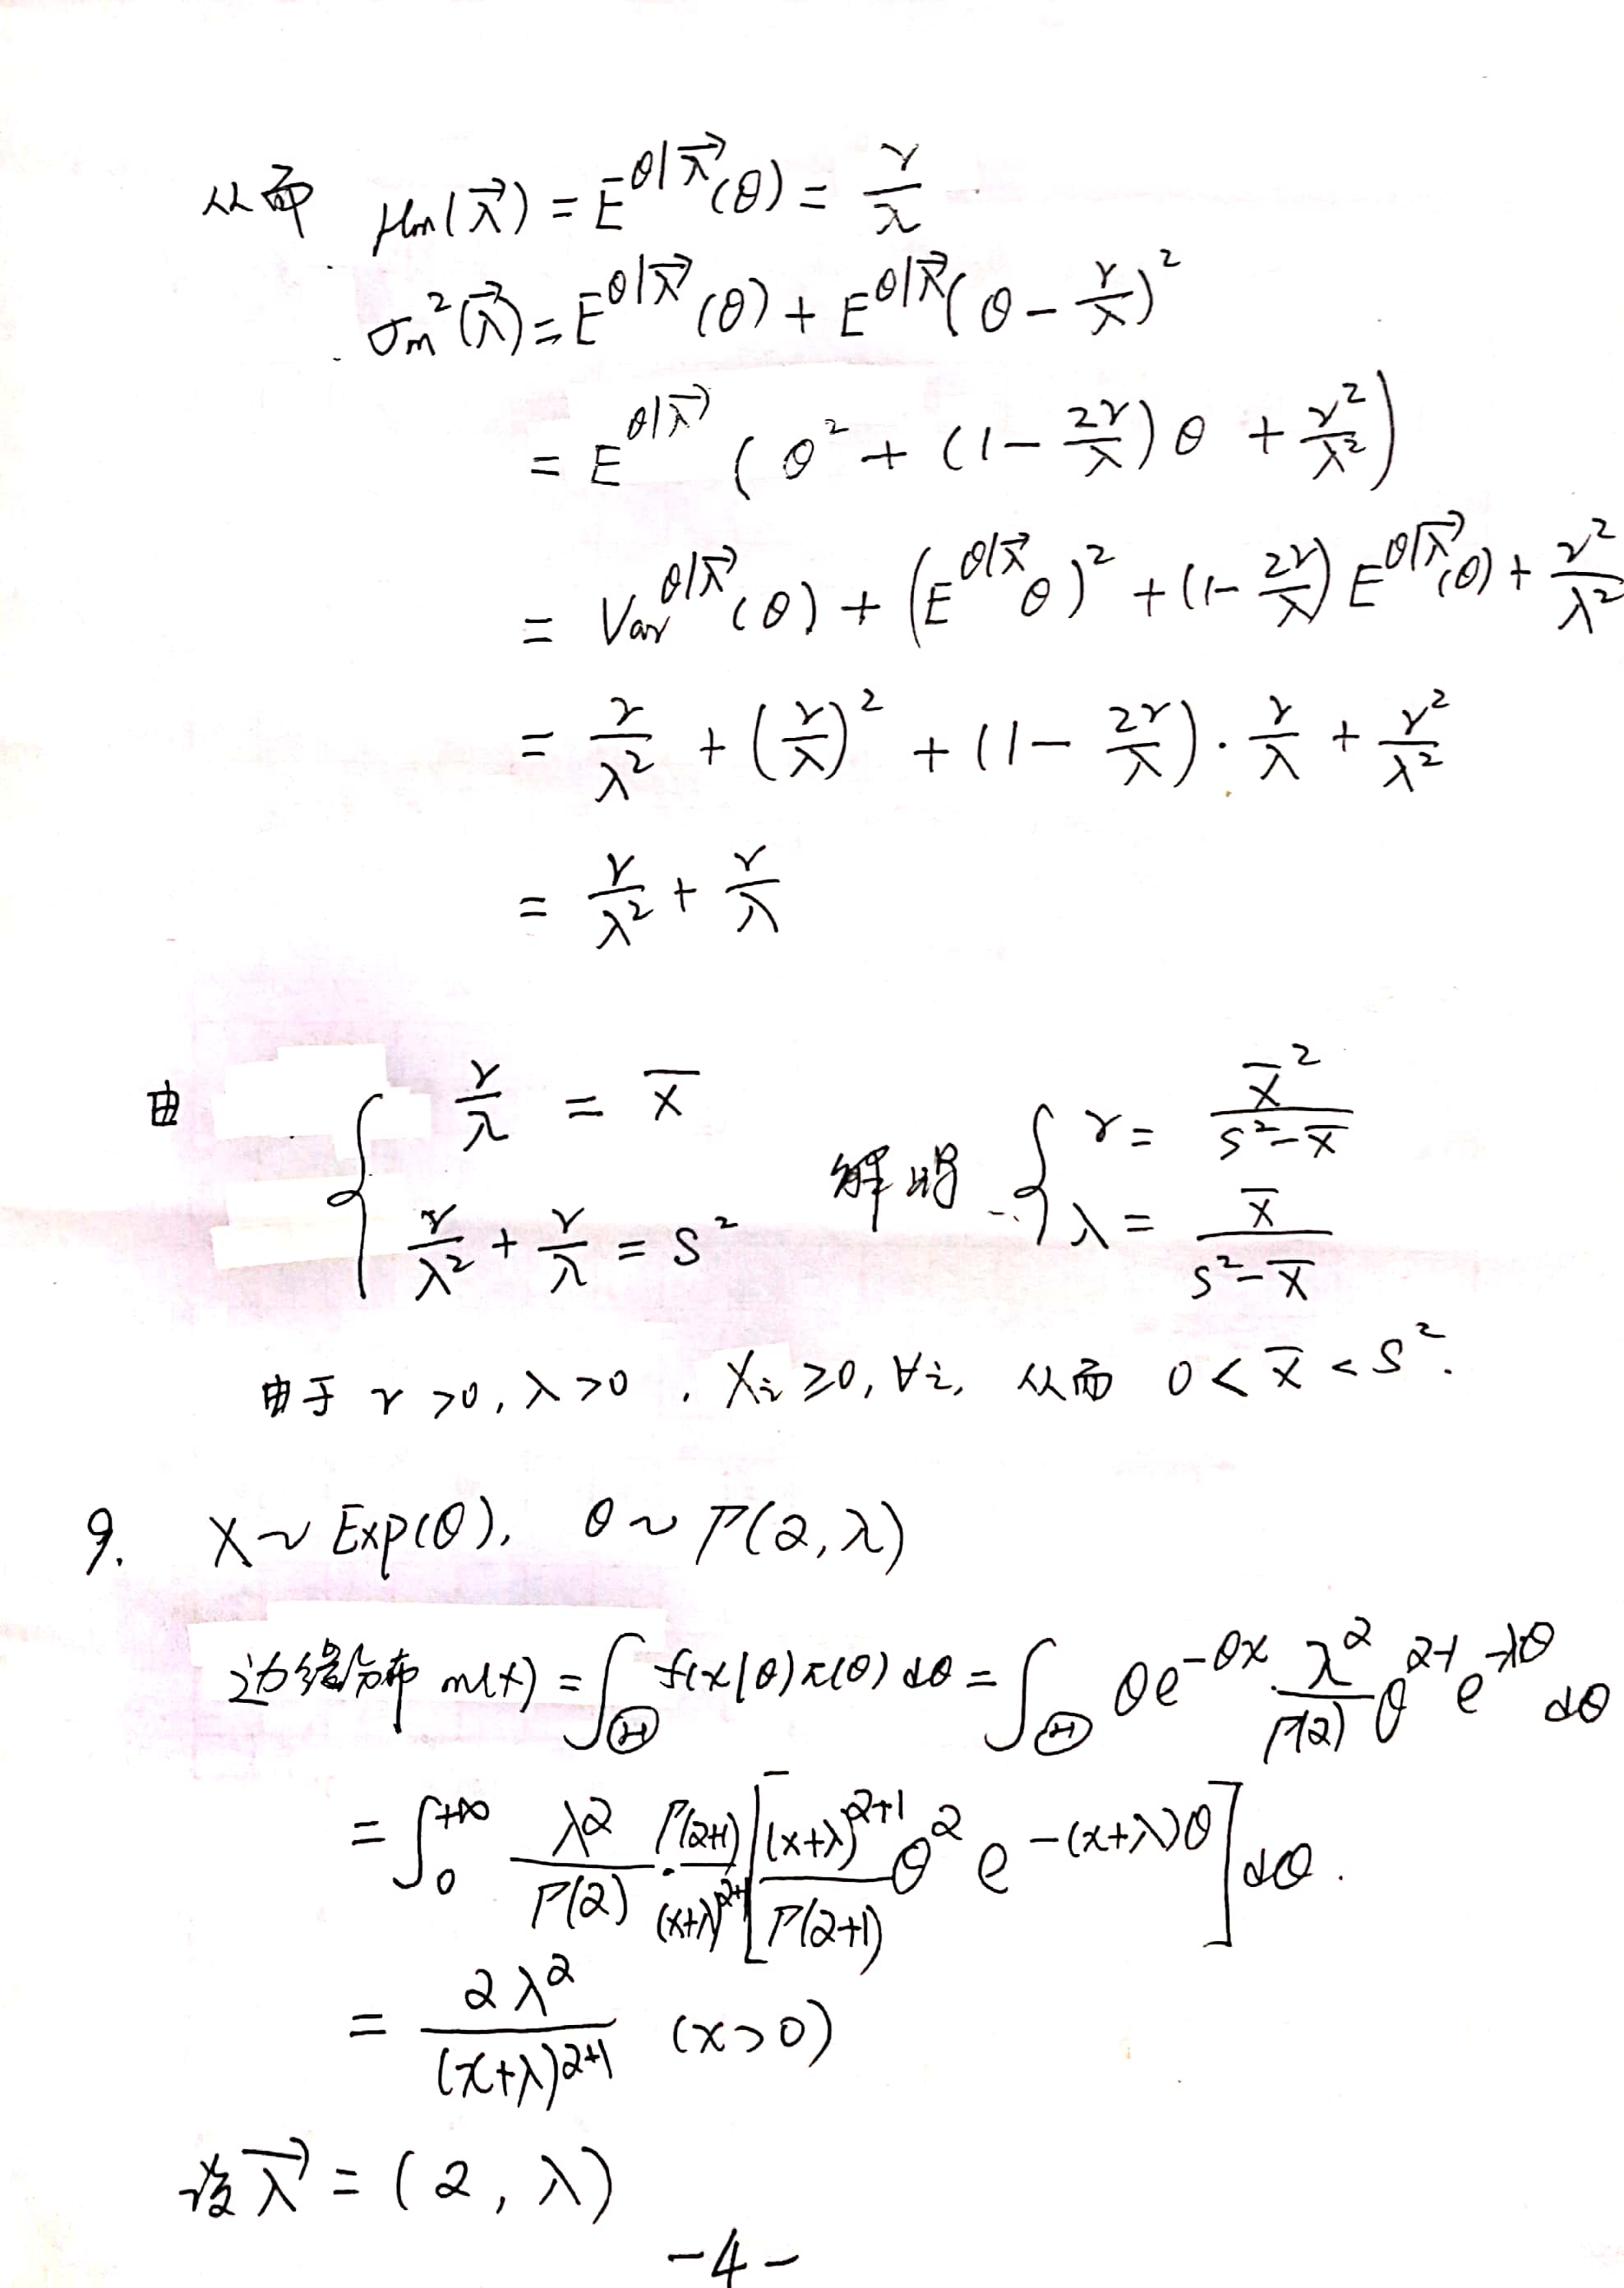 从而 μm(λ⃗) = E^{θ|λ⃗}(θ) = γ/λ
σm²(λ⃗) = E^{θ|λ⃗}(θ) + E^{θ|λ⃗}(θ - γ/λ)²
= E^{θ|λ⃗}(θ² + (1 - 2γ/λ)θ + γ²/λ²)
= Var^{θ|λ⃗}(θ) + (E^{θ|λ⃗}θ)² + (1 - 2γ/λ)E^{θ|λ⃗}(θ) + γ²/λ²
= γ/λ² + (γ/λ)² + (1 - 2γ/λ)·γ/λ + γ²/λ²
= γ/λ² + γ/λ
由 { γ/λ = x̄, γ/λ² + γ/λ = S² 解得 { γ = x̄²/(S² - x̄), λ = x̄/(S² - x̄)
由于 γ>0, λ>0. Xi ≥0, ∀i, 从而 0 < x̄ < S².
9. X ~ Exp(θ), θ ~ Γ(α, λ)
边缘分布 m(x) = ∫_Θ f(x|θ)π(θ)dθ = ∫_Θ θe^{-θx}·λ^α/Γ(α) θ^{α-1}e^{-λθ}dθ
= ∫_0^{+∞} λ^α/Γ(α)·Γ(α+1)/(x+λ)^{α+1} [(x+λ)^{α+1}/Γ(α+1) θ^α e^{-(x+λ)θ}]dθ.
= αλ^α/(x+λ)^{α+1} (x>0)
设 λ⃗ = (α, λ)
-4-